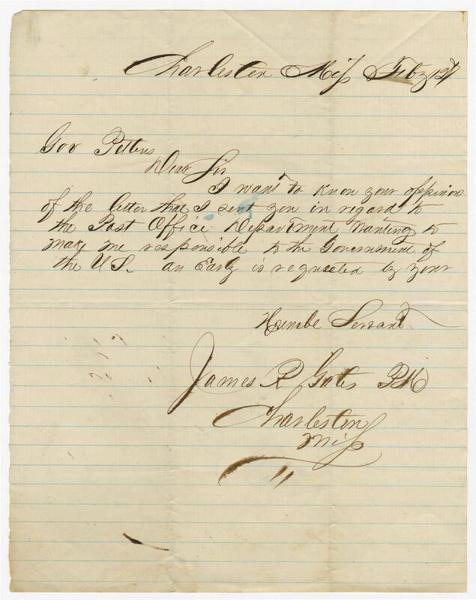 Charleston Miss Feby 12
Gov Pettus
Dear Sir
I want to know your oppinion
of the letter that I sent you in regard to
the Post Office Department wanting to
make me responsible to the Government of
the U.S. an Early is requested by your
Humbe Servant
James R Gates PM
Charleston
Miss